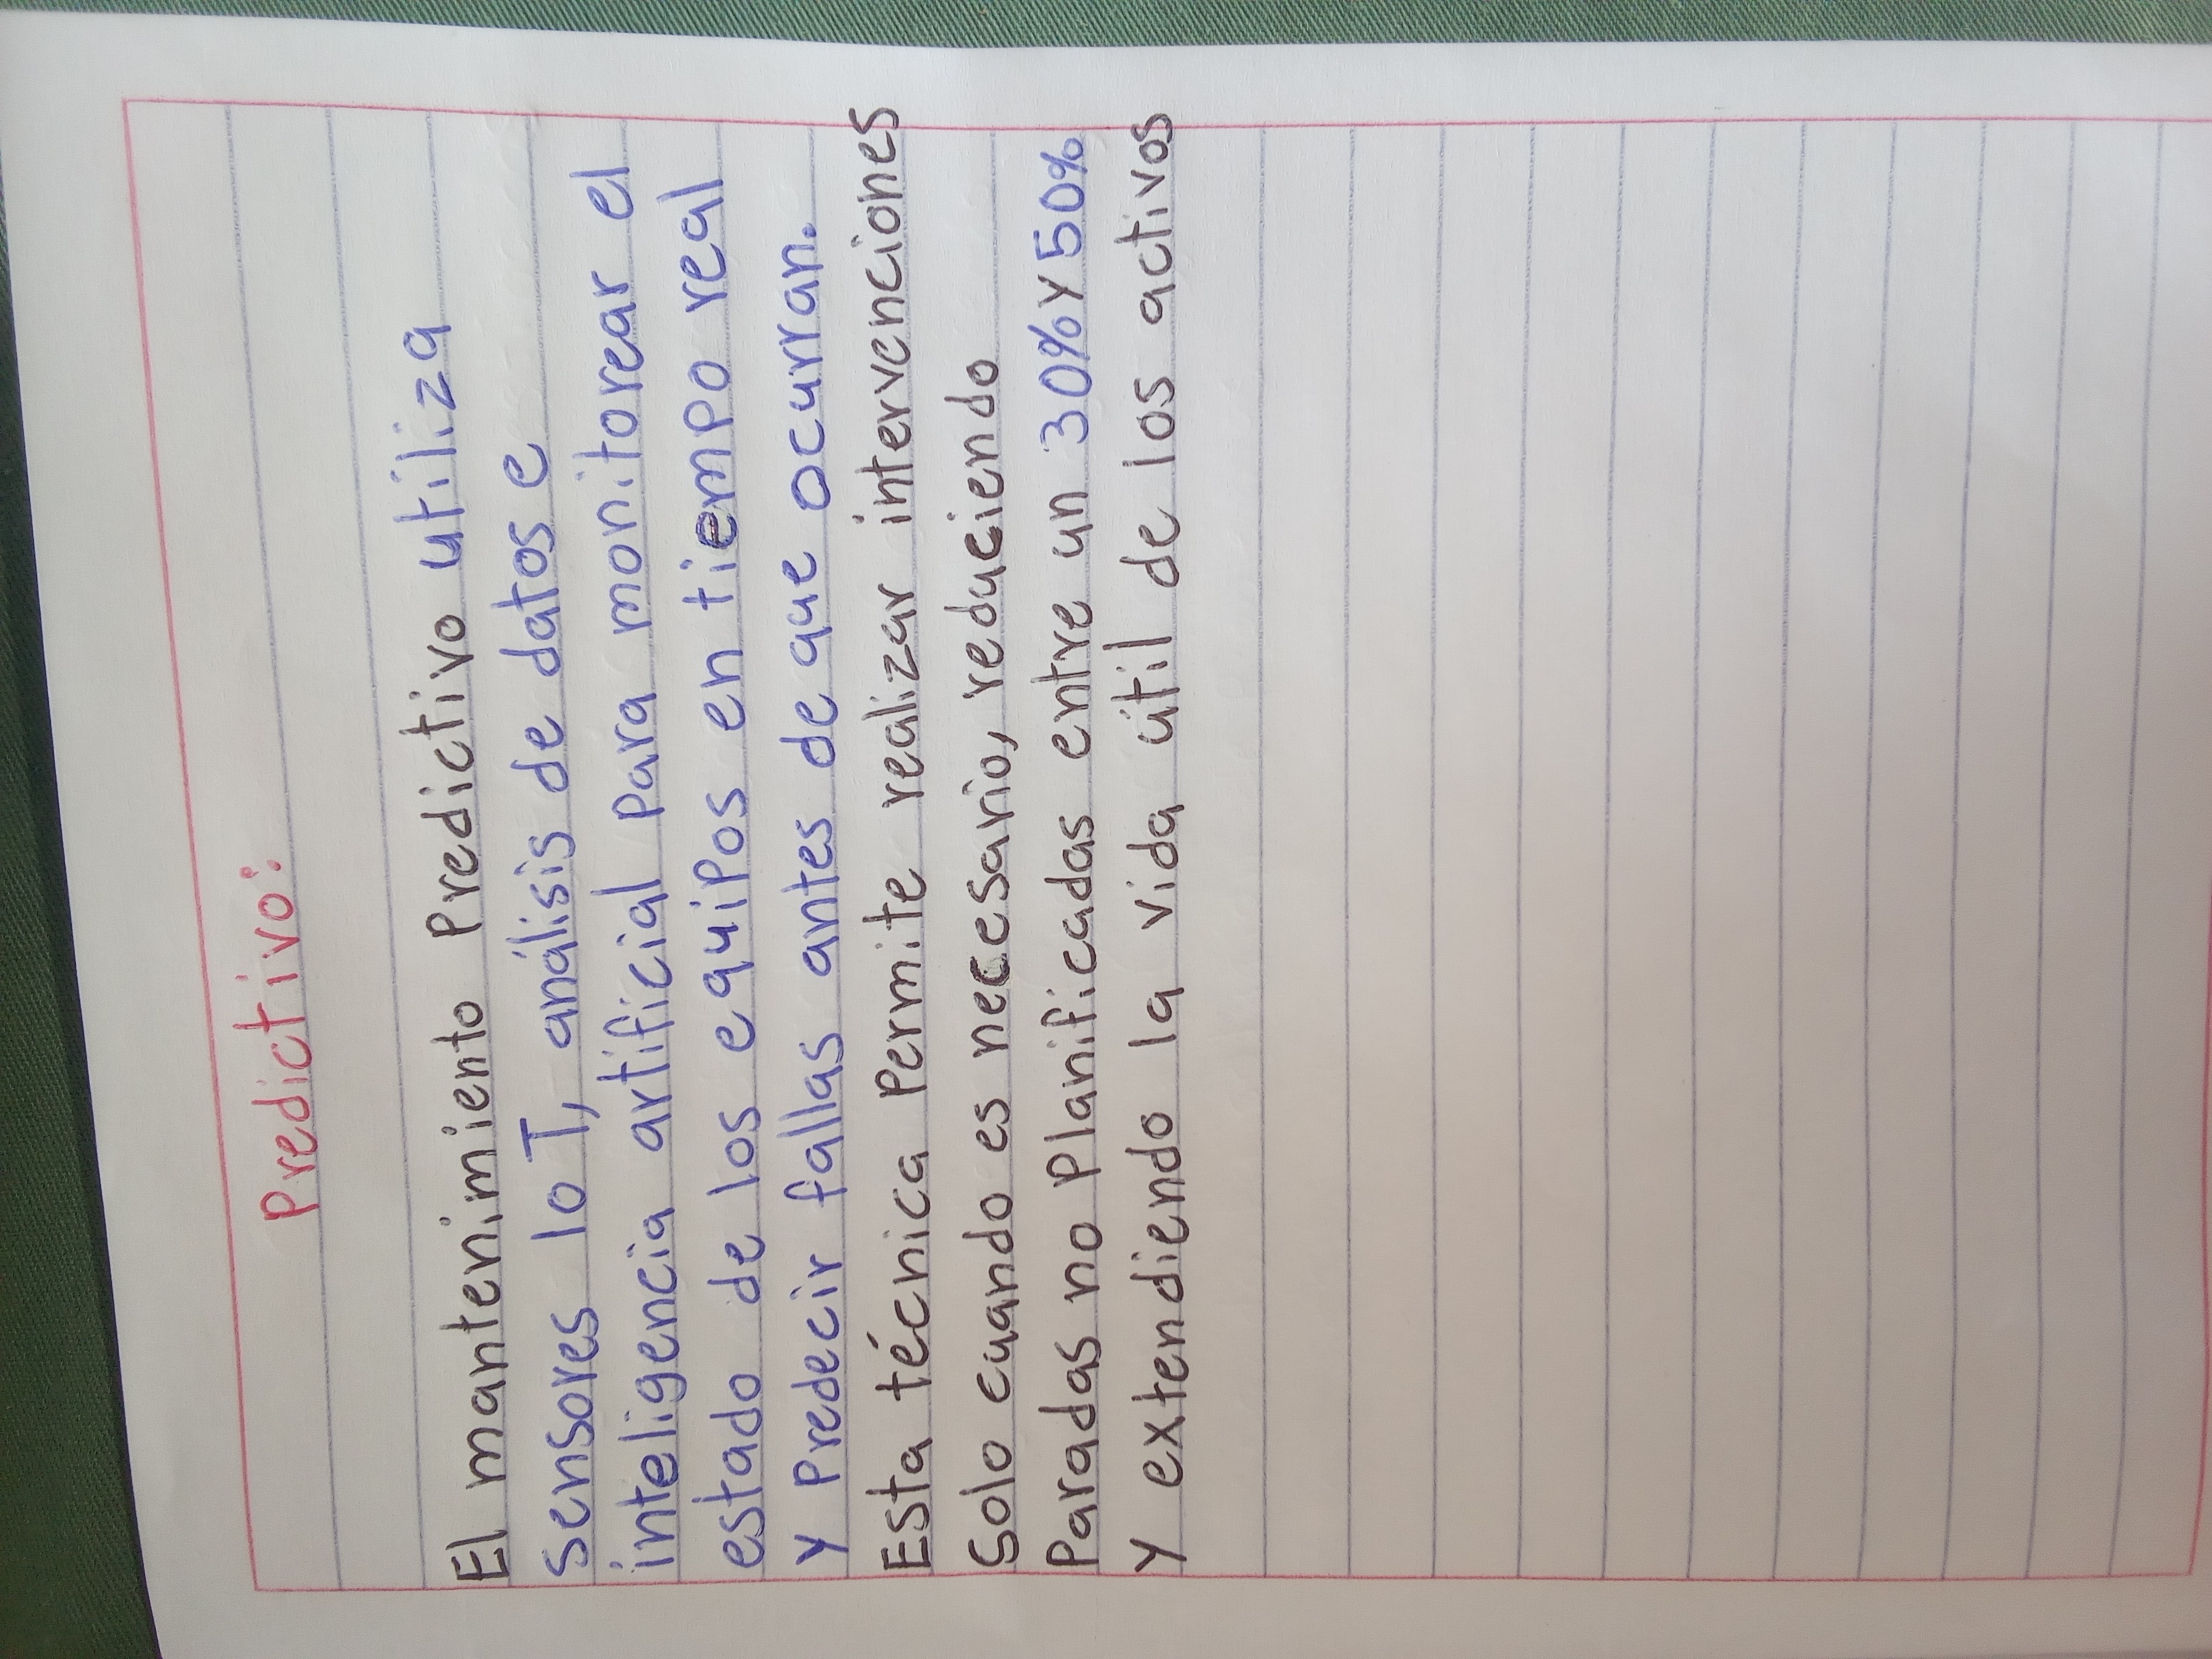 Predictivo:
El mantenimiento Predictivo utiliza
sensores loT, análisis de datos e
inteligencia artificial para monitorear el
estado de los equipos en tiempo real
y Predecir fallas antes de que ocurran.
Esta técnica Permite realizar intervenciones
Solo cuando es necesario, reduciendo
Paradas no Planificadas entre un 30% y 50%
y extendiendo la vida útil de los activos